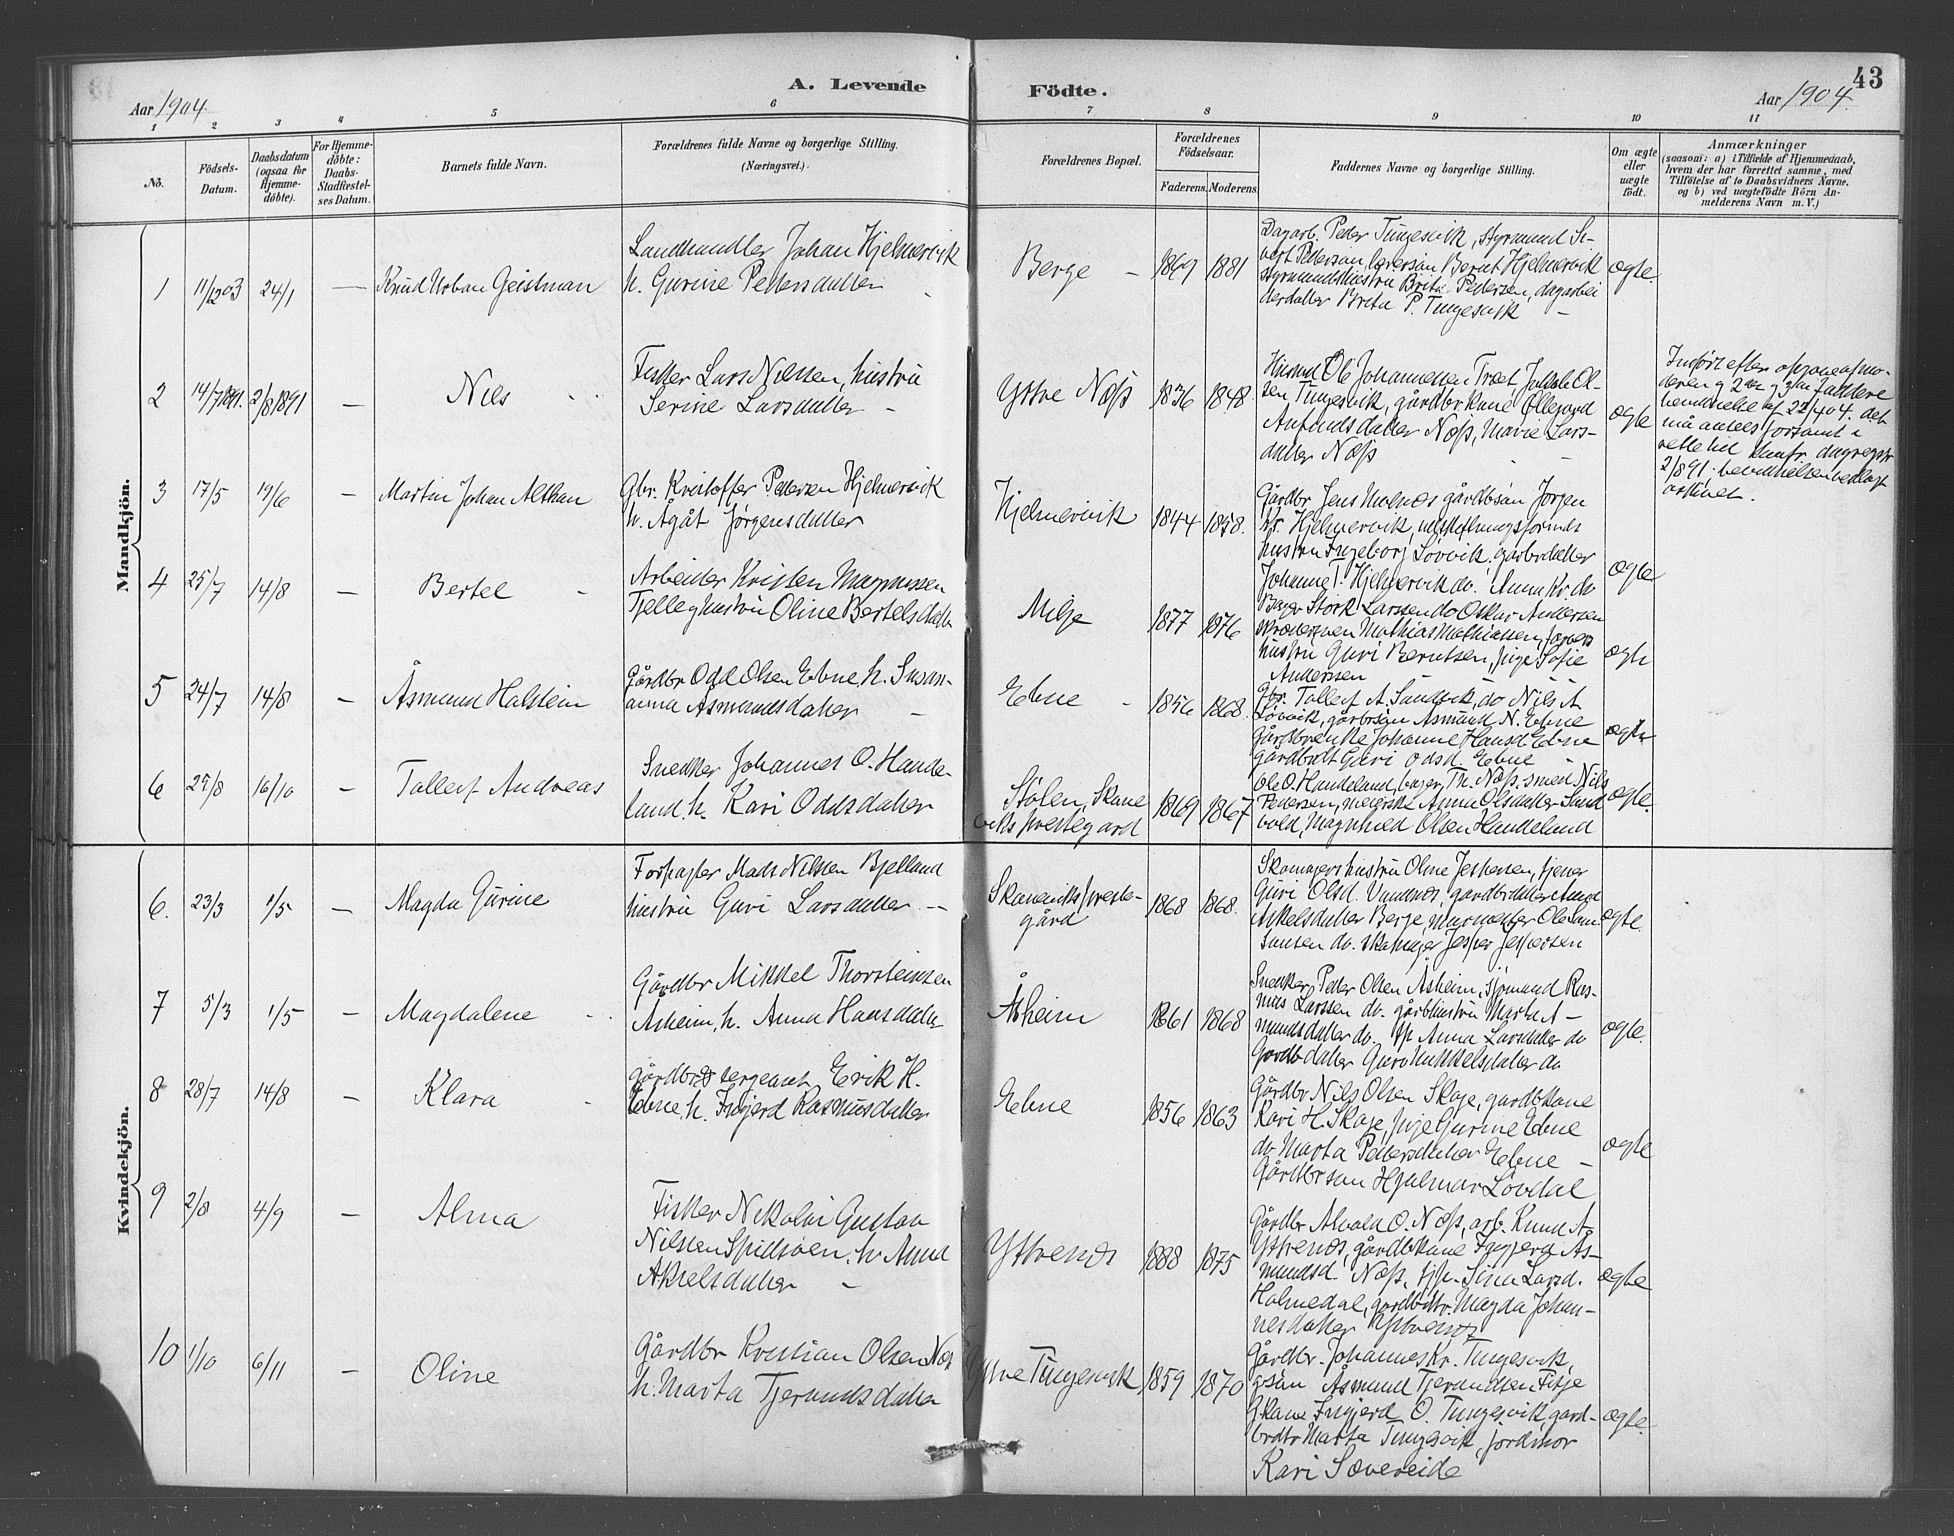 43
A. Levende
Födte.
Aar 1904
Aar 1904.
1 2 3 4 5 6 7 8 9 10 11
No.
Födsels-
Datum.
Daabsdatum
(ogsaa for
Hjemme-
döbte).
For Hjemme-
döbte:
Daabs-
Stadfæstel-
ses Datum.
Barnets fulde Navn.
Forældrenes fulde Navne og borgerlige Stilling.
(Næringsvei.)
Forældrenes Bopæl.
Forældrenes
Födselsaar.
Faderens. Moderens.
Faddernes Navne og borgerlige Stilling.
Om ægte
eller
uægte
födt.
Anmærkninger
(saasom: a) i Tilfælde af Hjemmedaab,
hvem der har forrettet samme, med
Tilföielse af to Daabsvidners Navne,
og b) ved uægtefödte Börn An-
melderens Navn m. V.)
Mandkjön.
1 11/12 03 24/1 — Knud Urban Geistman
Landhandler Johan Hjelmervik
h. Gurine Pedersdatter
Berge – 1869 1881
Dagarb. Peder Tungesvik, styrmand Si-
vert Pedersen, Bernt Hjelmervik
styrmandshustru Brita Pedersen, dagarbei
derdatter Brita P. Tungesvik –
ægte.
2 14/7 1891. 2/8 1891 — Nils
Fisker Lars Nilssen, hustru
Serine Larsdatter –
Ystre Næss 1836 1848
Husmd Ole Johannessen Træt, Ol-
sen Tungesvik, gårdbr.kone Ollegard
Amundsdatter Næss, Marie Lars-
datter Næss
ægte
Indfört efter opgave af mo-
deren og 2den og 3die faddere
bevidnelse af 22/4 04. det
må antees forsömt i
rette tid
2/8 91. bevidnelsen vedlagt
arkivet.
3 17/5 19/6 — Martin Johan Althan
Gbr. Kristoffer Pedersen Hjelmervik
h. Agåt Jörgensdatter
Hjelmervik 1844 1858.
Gårdbr Jens Molnes gårdbsön Jörgen
Kr. Hjelmervik,
hustru Ingeborg Lövvik, gårdbrdatter
Johanne T. Hjelmervik do. Anna Kr. do
ægte
4 25/7 14/8 — Bertel
Arbeider Kristen Magnussen
Tjelle hustru Oline Bertelsdatter
Milje 1877 1876
Bager Störk Larssen do Oskar Andersen
Mathias Mathiassen,
hustru Guri Berntsen, pige Sofie
Andersen
ægte
5 24/7 14/8 — Åsmund Halstein
Gårdbr Odd Olsen Ebne, h. Susan-
anna Åsmundsdatter –
Ebne – 1856 1868.
Gbr. Tollerf A. Sandvik, do Nils A.
Lövvik, gårdbrsön Åsmund N. Ebne
Gårdbrenke Johanne Hansd Ebne
gårdbrdt Guri Odsd. Ebne –
ægte
6 29/8 16/10 — Tollerf Andreas
Snedker Johannes O. Hande-
land, h. Kari Oddsdatter
Stölen, Skane
viks prestegard 1869 1867
Ole O. Handeland, bager Th. Næss, smed Nils
Pedersen, meierske Anna Olsdatter Sand
vold, Magnhild Olsen Handeland
ægte.
Kvindekjön.
6. 23/3 1/5 — Magda Gurine
Forpagter Mads Nilssen Bjelland
hustru Guri Larsdatter —
Skaneviks preste-
gård 1868 1868.
Skomagerhustru Oline Jespersen, tjener
Guri Olsd. Vannes, gardbrdatter
Askelsdatter Berge, Ole Sam-
sonsen do. skomager Jesper Jespersen
ægte.
7 5/3 1/5 — Magdalene
Gårdbr Mikkel Thorsteinsen
Åsheim, h. Anna Hansdatter
Åsheim 1861 1868
Snedker Peder Olsen Åsheim, sjömand Ras-
mus Larssen do. gårdbhustru Marta A-
mundsdatter do. Anna Larsdatter do
Gardbdatter Guro Mikkelsdatter do
ægte.
8 28/7 14/8 — Klara
gårdbr sergeant Erik H.
Ebne, h. Ingjerd Rasmusdatter
Ebne 1856 1863
Gårdbr Nils Olsen Skaje, gardbkone
Kari H. Skaje, pige Gurine Ebne
do Marta Pedersdatter Ebne –
Gårdbrsön Hjalmar Lövdal
ægte
9 2/8 4/9 — Alma
Fisker Nikolai Gustav
Nilssen Spidsöen, h. Anna
Akselsdatter –
Ystrenes 1888 1875
Gårdbr Alvald O. Næss, arb. Knud A.
Ystrenes, gårdbkone Ingjerd As-
mundsd. Næss, tjp. Sina Larsd.
Holmedal, gardbrdtr. Magda Johan-
nesdatter Ystrenes
ægte
10 1/10 6/11 — Oline
Gårdbr Kristian Olsen Næs
h. Marta Tjerandsdatter
Ytre Tungesvik 1859 1870
Gårdbr. Johannes Kr. Tungesvik,
gsön Åsmund Tjerandsen Fitje
Gkone Ingjerd O. Tungesvik, gard-
brdtr Marta Tungesvik, jordmor
Kari Sævereide
ægte.